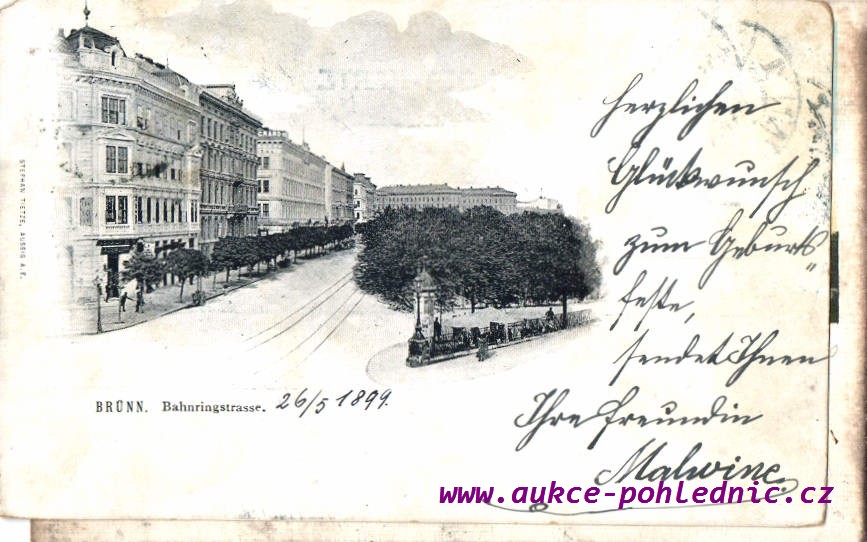 herzlichen
Glückwunsch
zum Geburts"
feste,
sendet Ihnen
Ihre Freundin
Malwine.
GRAND
STEPHAN TIETZE, AUSSIG A.E.
BRÜNN. Bahnringstrasse. 26/5 1899.
www.aukce-pohlednic.cz